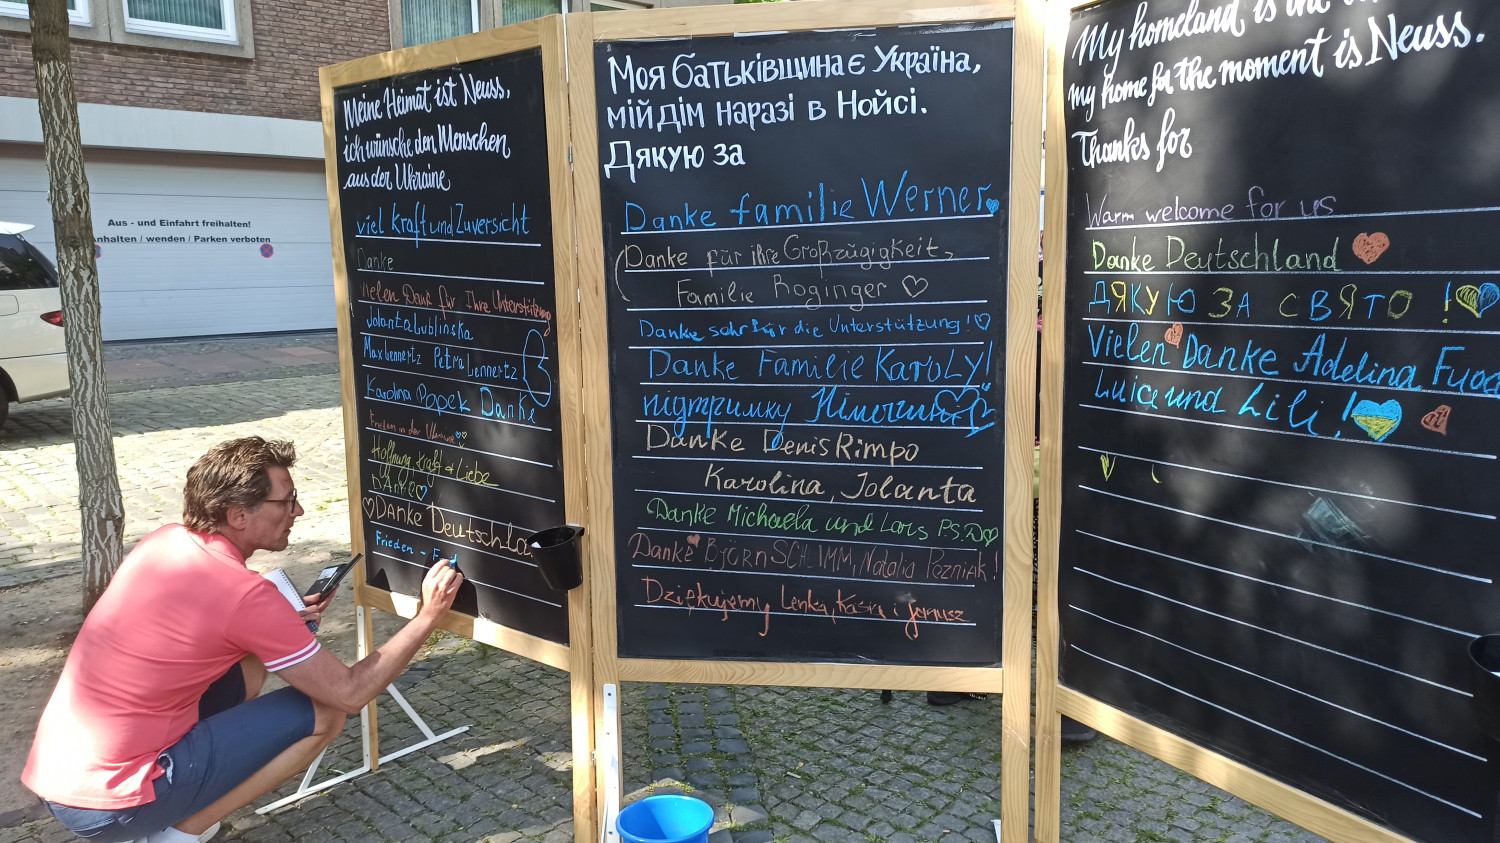 Aus - und Einfahrt freihalten!
Anhalten / wenden / Parken verboten
Meine Heimat ist Neuss,
ich wünsche den Menschen
aus der Ukraine
viel Kraft und Zuversicht
Danke
Vielen Dank für Ihre Unterstützung
Jolanta Lublinska
Max Lennertz Petra Lennertz
Karolina Popek Danke
Frieden in der Ukraine
Hoffnung Kraft & Liebe
DANKE
DANKE Deutschla
Frieden -
Моя батьківщина є Україна,
мій дім наразі в Нойсі.
Дякую за
Danke familie Werner
Danke für ihre Großzügigkeit,
Familie Roginger
Danke sehr für die Unterstützung!
Danke Familie KaroLY!
підтримку Німеччини
Danke Denis Rimpo
Karolina, Jolanta
Danke Michaela und Lars P.S.D
Danke BJÖRN SCHIMM, Natalia Pozniak!
Dziękujemy Lenka, Kasia i Janusz
My homeland is the
my home for the moment is Neuss.
Thanks for
Warm welcome for us
Danke Deutschland
ДЯКУЮ ЗА СВЯТО !
Vielen Danke Adelina
Luice und Lili!